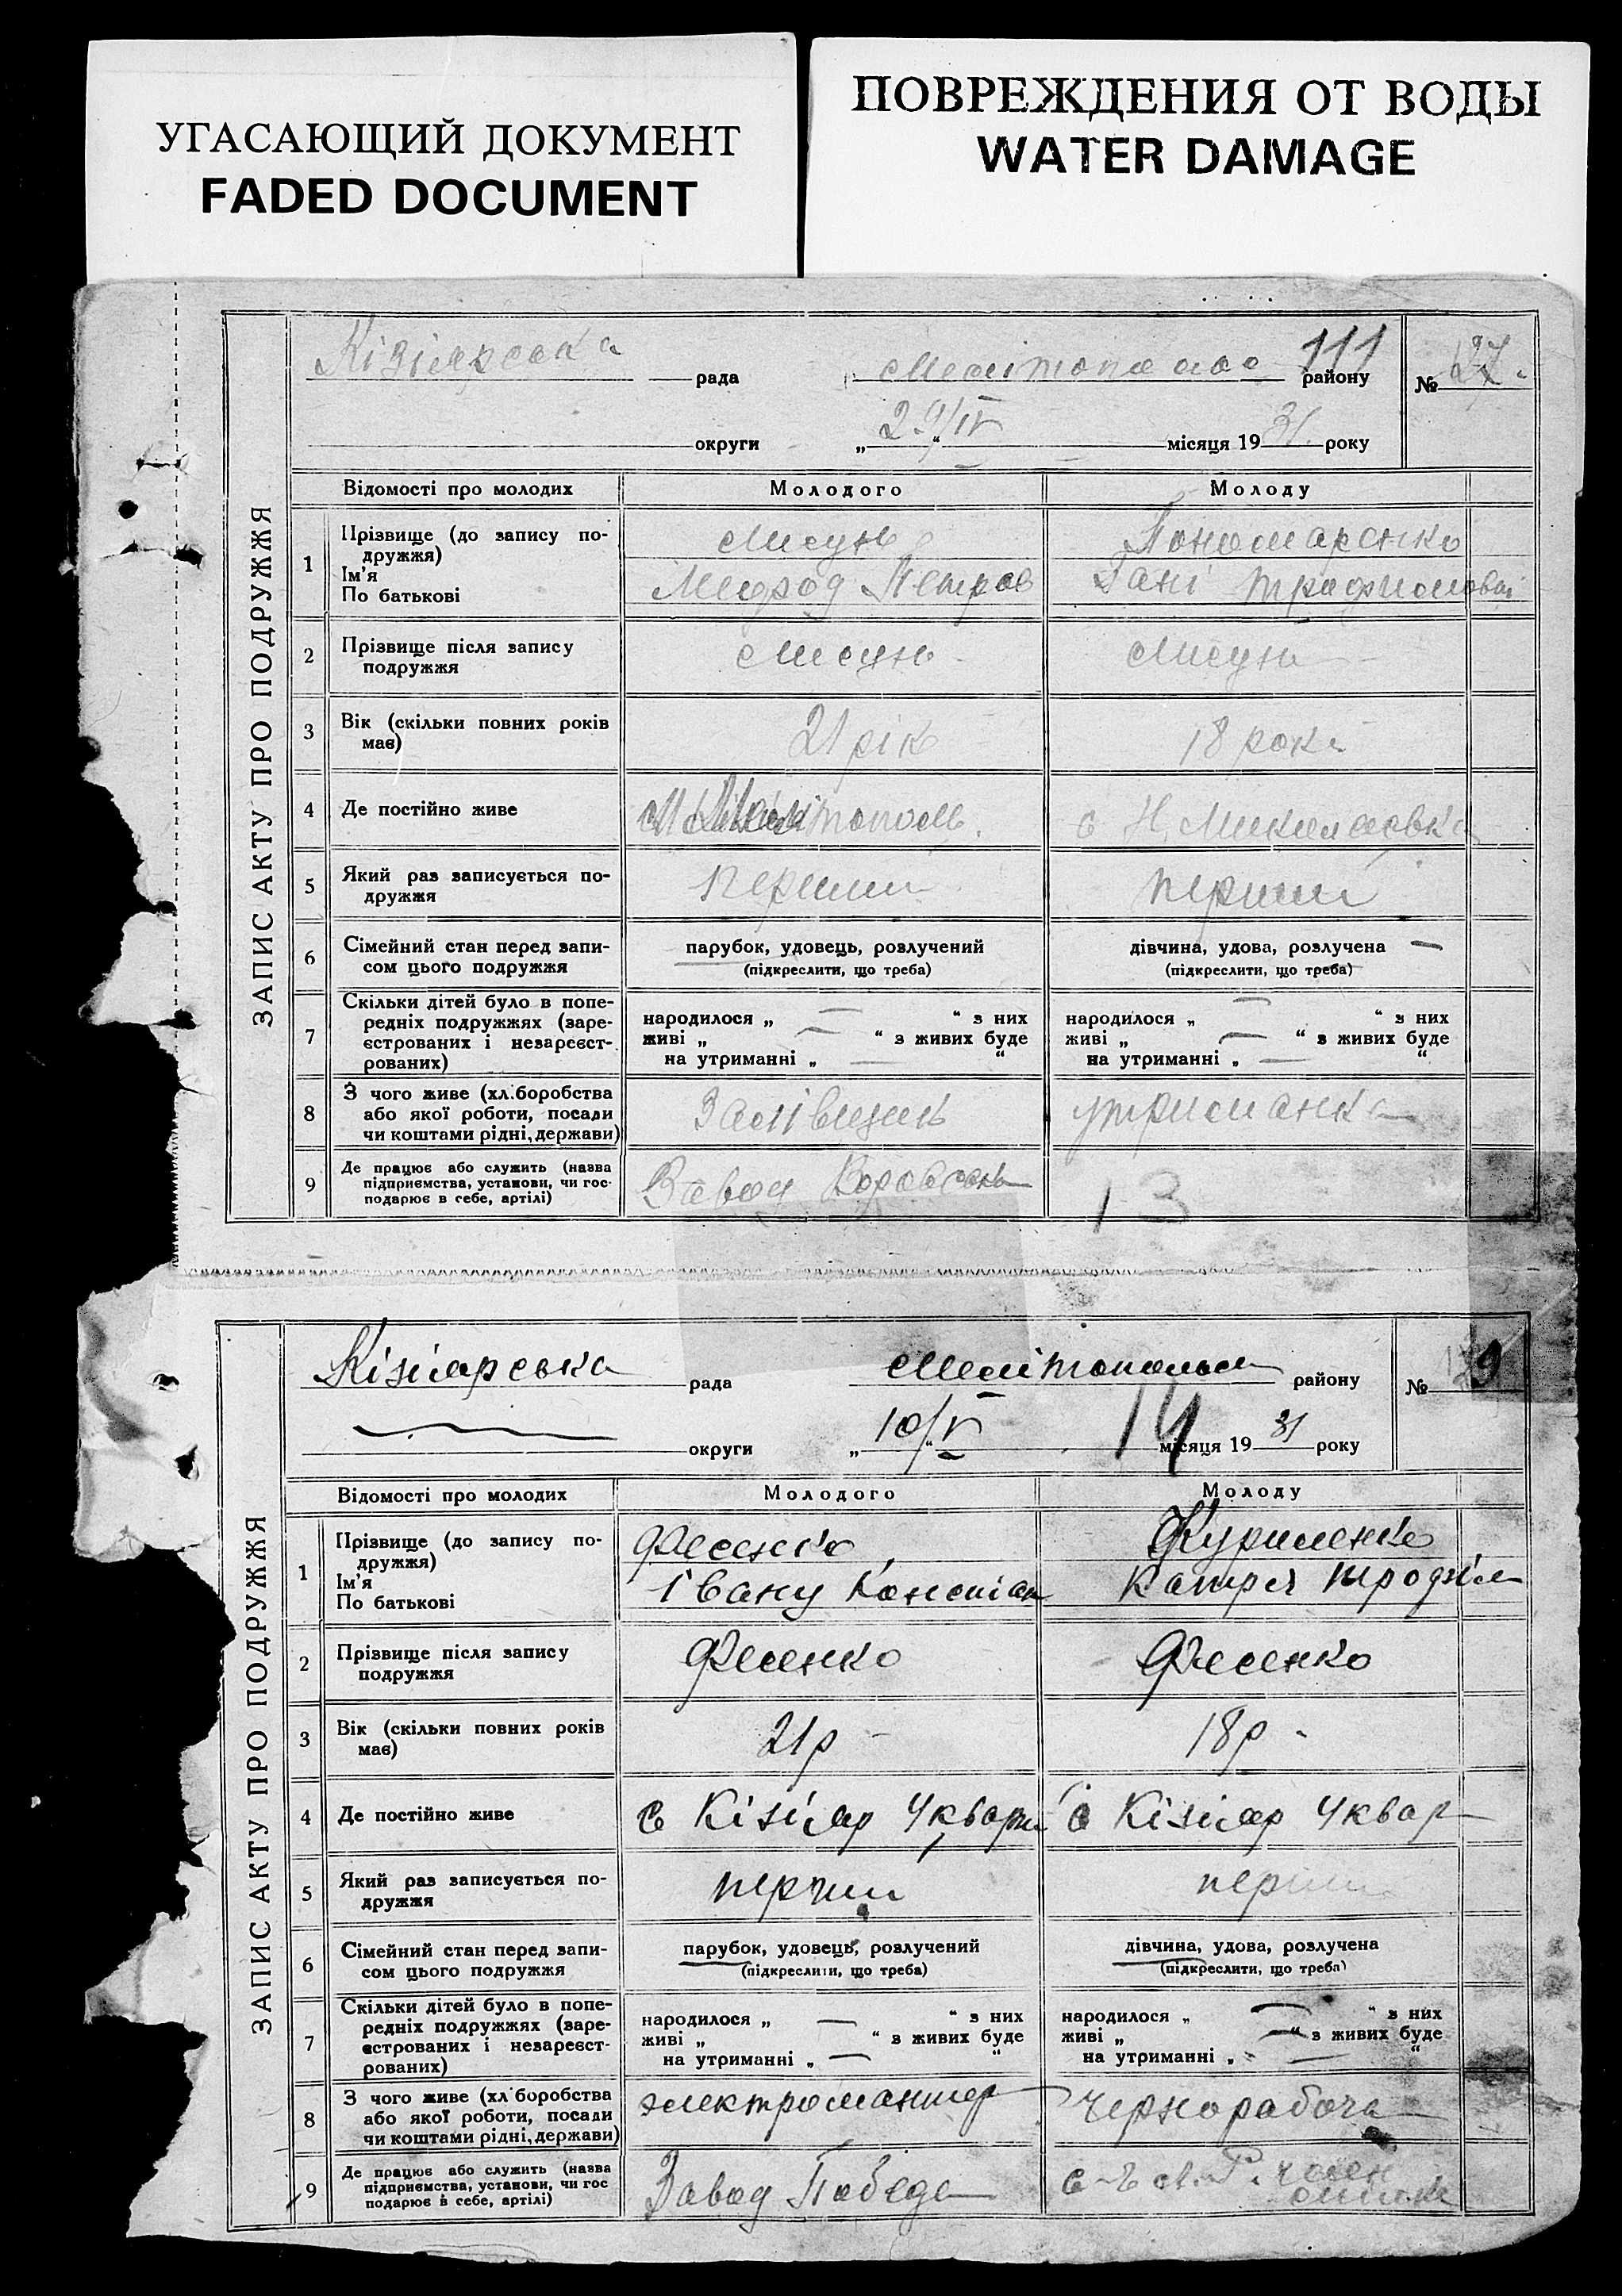 УГАСАЮЩИЙ ДОКУМЕНТ
FADED DOCUMENT
ПОВРЕЖДЕНИЯ ОТ ВОДЫ
WATER DAMAGE
ЗАПИС АКТУ ПРО ПОДРУЖЖЯ
Кізіярська рада району 111 № 127.
округи „29/IV“ місяця 1931. року
Відомості про молодих Молодого Молоду
1 Прізвище (до запису по-
дружжя)
Ім'я
По батькові
Мисунь Пономаренко
Мефод Петров Гані Трафимовві
2 Прізвище після запису
подружжя
Мисунь Мисунь
3 Вік (скільки повних років
має)
21 рік 18 рокі
4 Де постійно живе
Мелітополь. с Н. Миколаєвка
5 Який раз записується по-
дружжя
перший перший
6 Сімейний стан перед запи-
сом цього подружжя
парубок, удовець, розлучений
(підкреслити, що треба)
дівчина, удова, розлучена —
(підкреслити, що треба)
7 Скільки дітей було в попе-
редніх подружжях (заре-
єстрованих і незареєст-
рованих)
народилося „ — “ з них
живі „ — “ з живих буде
на утриманні „ — “
народилося „ — “ з них
живі „ — “ з живих буде
на утриманні „ — “
8 З чого живе (хл.боробства
або якої роботи, посади
чи коштами рідні, держави)
Заливщик утриманка
9 Де працює або служить (назва
підприємства, установи, чи гос-
подарює в себе, артілі)
Завод 13
ЗАПИС АКТУ ПРО ПОДРУЖЖЯ
Кізіярська рада Мелітопольськ району № 9
округи „10/V“ 14 місяця 1931 року
Відомості про молодих Молодого Молоду
1 Прізвище (до запису по-
дружжя)
Ім'я
По батькові
Фесенко Куриленко
Івану Констан Катря
2 Прізвище після запису
подружжя
Фесенко Фесенко
3 Вік (скільки повних років
має)
21р 18р
4 Де постійно живе
с Кізіяр 4 кварт с Кізіяр 4 квар
5 Який раз записується по-
дружжя
перший перший
6 Сімейний стан перед запи-
сом цього подружжя
парубок, удовець, розлучений
(підкреслити, що треба)
дівчина, удова, розлучена
(підкреслити, що треба)
7 Скільки дітей було в попе-
редніх подружжях (заре-
єстрованих і незареєст-
рованих)
народилося „ — “ з них
живі „ “ з живих буде
на утриманні „ — “
народилося „ — “ з них
живі „ — “ з живих буде
на утриманні „ — “
8 З чого живе (хл боробства
або якої роботи, посади
чи коштами рідні, держави)
електромантер Чернорабоча
9 Де працює або служить (назва
підприємства, установи, чи гос
подарює в себе, артілі)
Завод Победа